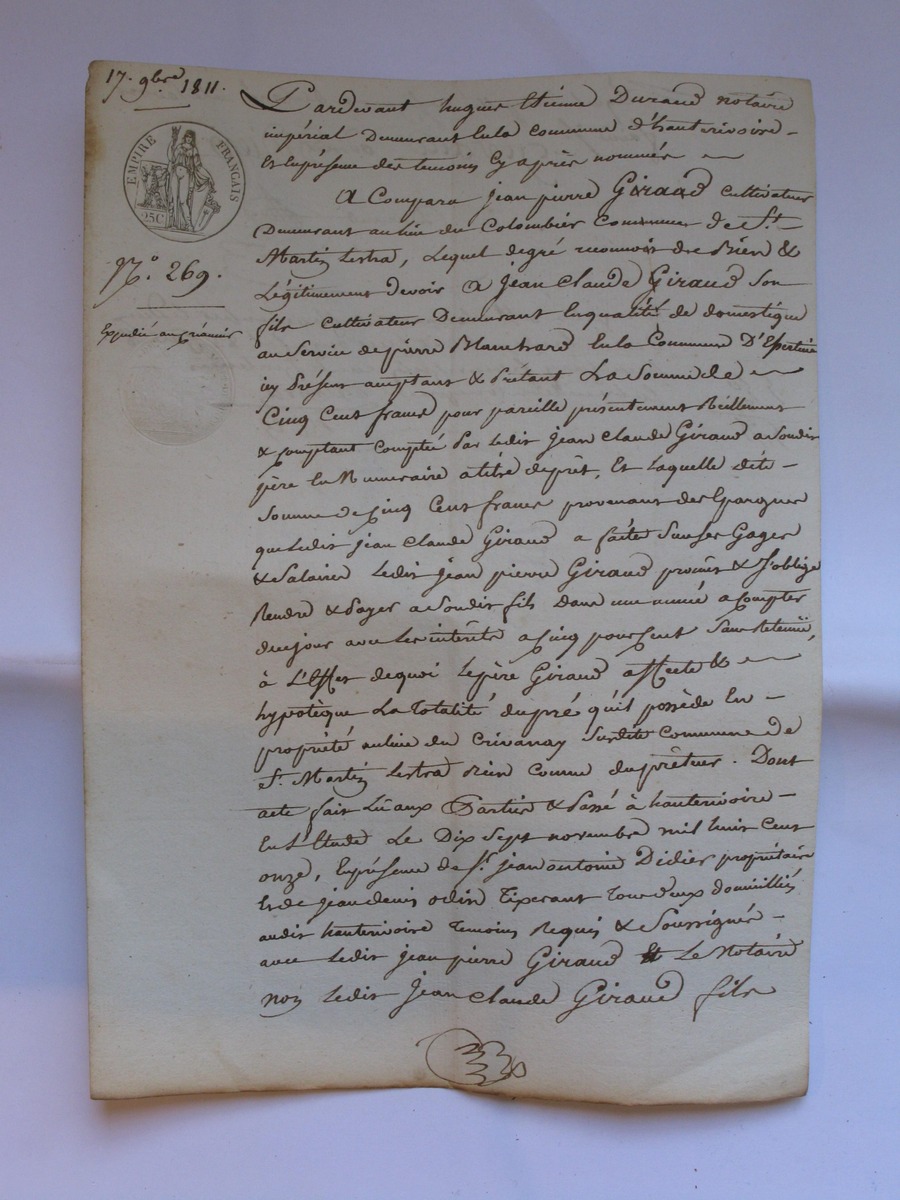 17. 9bre 1811.
EMPIRE FRANÇAIS
25C
N.° 269.
Expédié au créancier
Pardevant hugues Etienne Durand notaire
impérial Demeurant En la commune d'hauterivoire –
Et En présence des temoins Cy après nommés
A Comparu jean pierre Giraud Cultivateur
Demeurant au lieu du Colombier Commune de St.
Martin Lestra, Lequel de gré reconnoit dre Bien &
Légitimement devoir a jean Claude Giraud Son
fils cultivateur Demeurant En qualité de domestique
au Service de pierre Blanchard En la Commune D'Essertine
icy Présent acceptant & Prétant La Somme de
Cinq Cent francs pour pareille présentement Réellement
& comptant comptée Par ledit jean Claude Giraud a Soudit
père En Numeraire a titre de prêt, Et Laquelle dite –
Somme de Cinq Cent francs provenant des Epargnes
que Ledit jean Claude Giraud a faites Sur Ses Gages
& Salaires Ledit jean pierre Giraud promet & S'oblige
Rendre & Payer a Son dit fils Dans une année a Compter
du jour avec Les intérêts a Cinq pour Cent Sans Retenue,
à L'Effet de quoi Le père Giraud affecte &
hypotèque La Totalité du pré qu'il possède En –
propriété au lieu du Crivanay Susdite Commune de
St. Martin Lestra Rien comme du prêteur. Dont
acte fait Lu aux Parties & Passé à hauterivoire –
En L'Etude Le Dix Sept novembre mil huit Cent
onze, En présence de Sr. jean antoine Didier propriétaire
Et de jean denis odin Tixerant Tous deux domiciliés
audit hauterivoire Temoins Requis & Soussignés –
avec Ledit jean pierre Giraud Et Le Notaire
non Ledit jean Claude Giraud fils